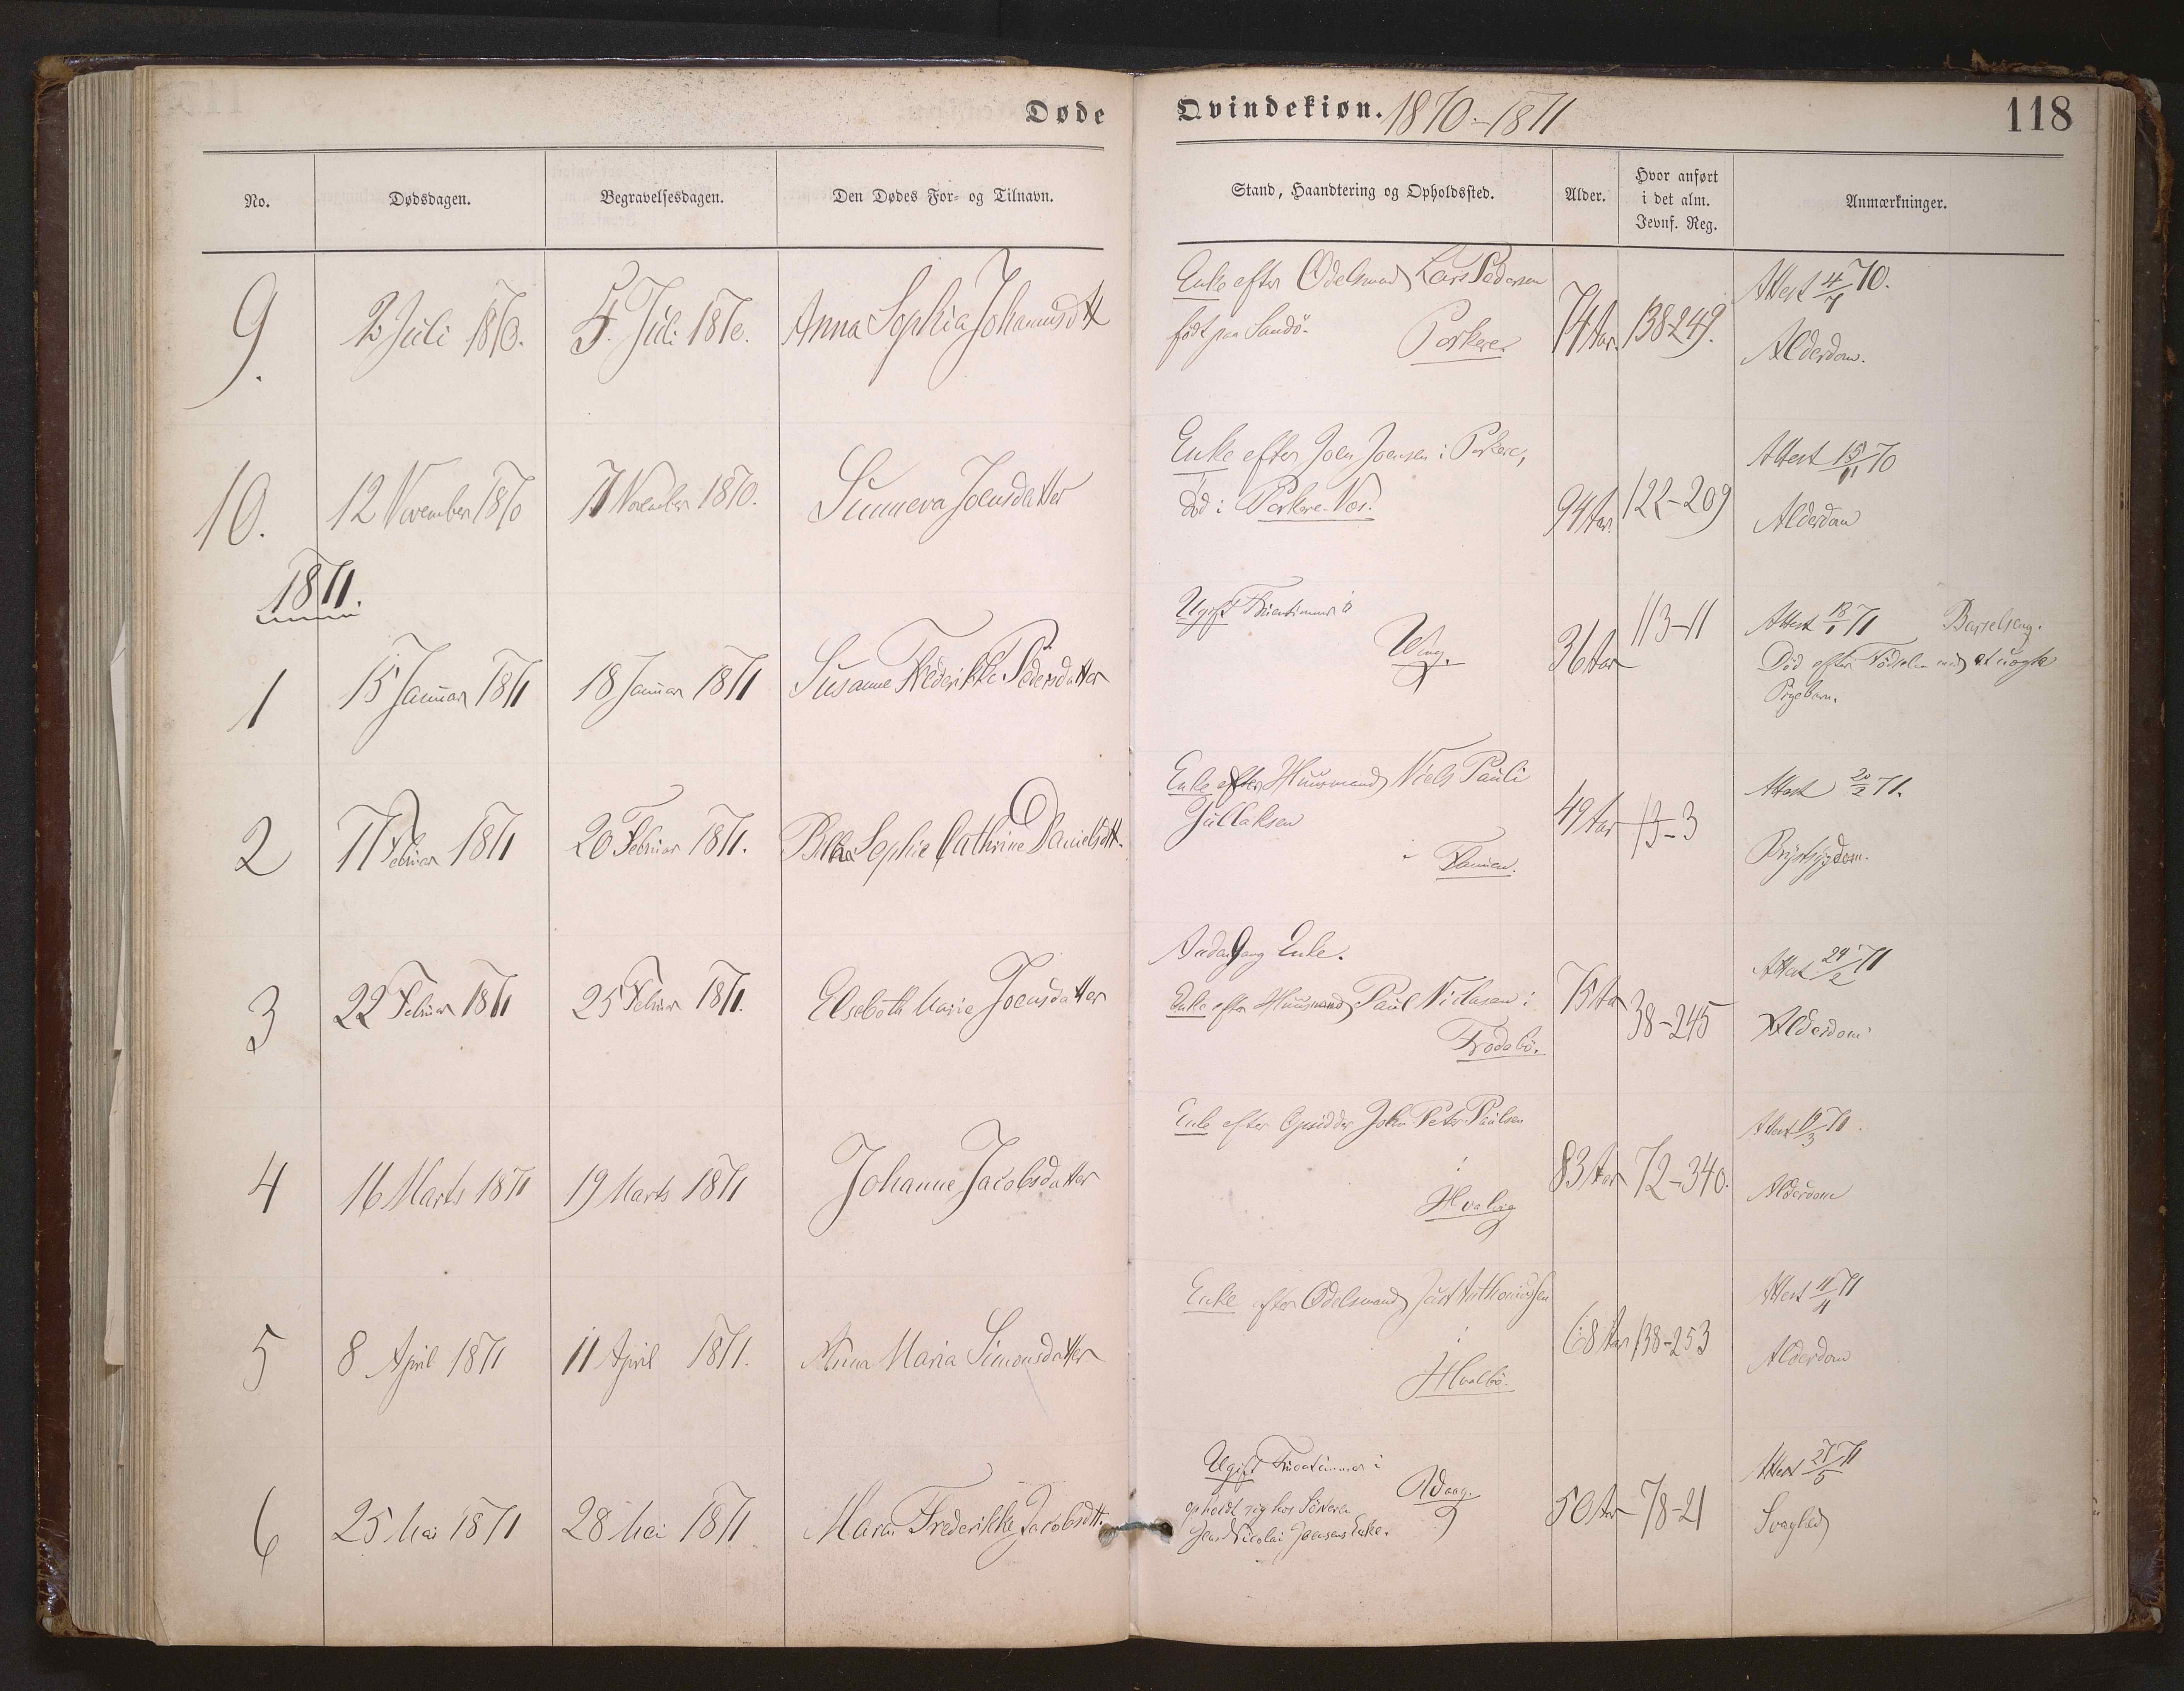 Døde Qvindekiøn. 1870-1871 118
No. Dødsdagen. Begravelsesdagen. Den Dødes For- og Tilnavn. Stand, Haandtering og Opholdssted. Alder. Hvor anført i det alm. Jevnf. Reg. Anmærkninger.
Enke efter Odelsmand Lars Pedersen Attest 4/7 70.
9. 2 Juli 1870. 5. Juli 1870. Anna Sophia Johannisdtt født paa Sandö. Porkere. 74 Aar. 138-249. Alderdom.
Enke efter Joen Joensen i Porkere, Attest 15/11 70
10. 12 November 1870 17 November 1870. Sunneva Joensdatter død i Porkere. Vos. 94 Aar. 122-209 Alderdom
1871.
Ugift Fruentimmer i Attest 18/1 71 Barselseng.
1 15 Januar 1871 18 Januar 1871 Susanne Frederikke Pedersdatter Waag. 36 Aar 113-11 Død efter Fødselen med et uægte
Pigebarn.
Enke efter Huusmand Niels Pauli Attest 20/2 71.
2 17 Februar 1871 20 Februar 1871. Sophie Cathrine Danielsdtt. 49 Aar 13-3 Brystsygdom.
i Famien.
Andengang Enke. Attest 24/2 71
3 22 Februar 1871 25 Februar 1871. Elsebeth Marie Joensdatter Enke efter Huusmand Paul Niclasen i 75 Aar 38-245 Alderdom
Frodebö.
Enke efter Opsidder John Peter Paulsen Attest 19/3 71.
4 16 Marts 1871 19 Marts 1871 Johanne Jacobsdatter i 83 Aar 72-340. Alderdom
Hvalvig
Enke efter Odelsmand Just Anthoniussen Attest 11/4 71
5 8 April 1871 11 April 1871. Anna Maria Simonsdatter i 68 Aar 138-253 Alderdom
Hvalbö.
Ugift Fruentimmer i Waag. Attest 27/5 71
6 25 Mai 1871 28 Mai 1871 Maria Frederikke Jacobsdtt. opholdt sig hos Søsteren 50 Aar 78-21 Svaghed
Jens Nicolai Joensens Enke.